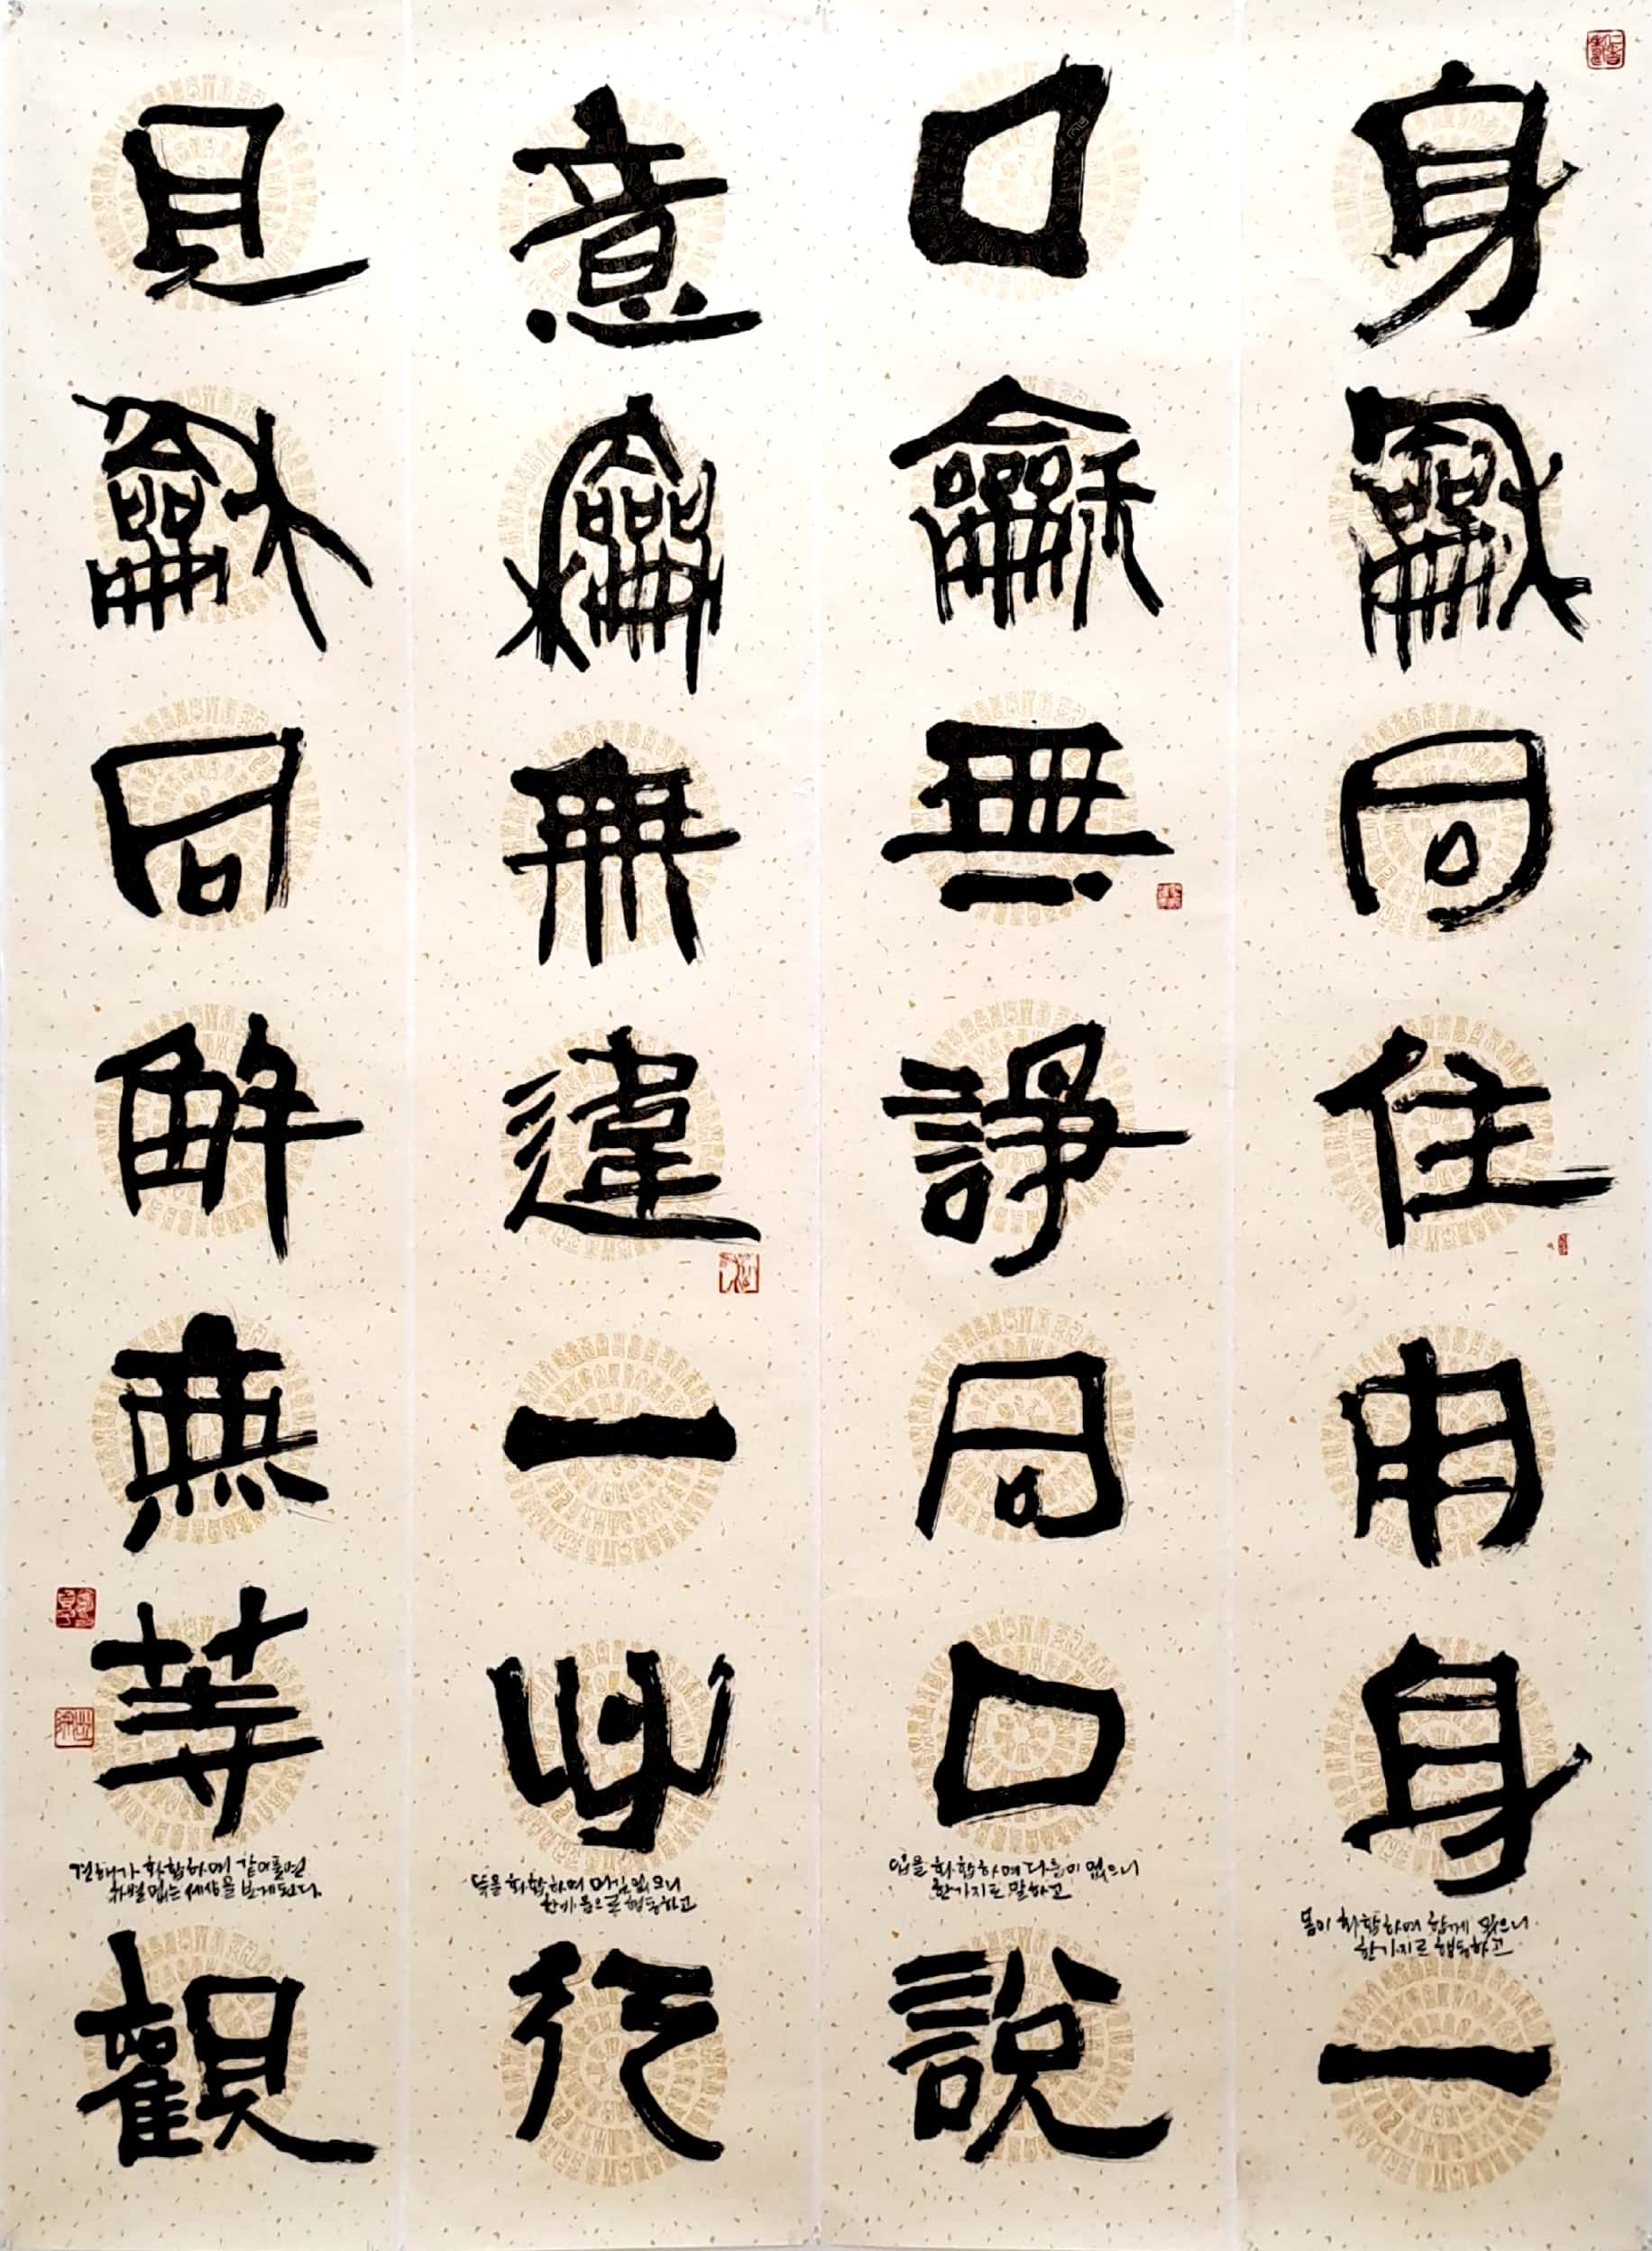 身龢同住用身一
몸이 화합하며 함께 있으니
한가지로 행동하고
口龢無諍同口說
입을 화합하며 다툼이 없으니
한가지로 말하고
意龢無違一心行
뜻을 화합하며 어김 없으니
한마음으로 행동하고
見龢同解無等觀
견해가 화합하며 같이 풀면
차별 없는 세상을 보게 된다.